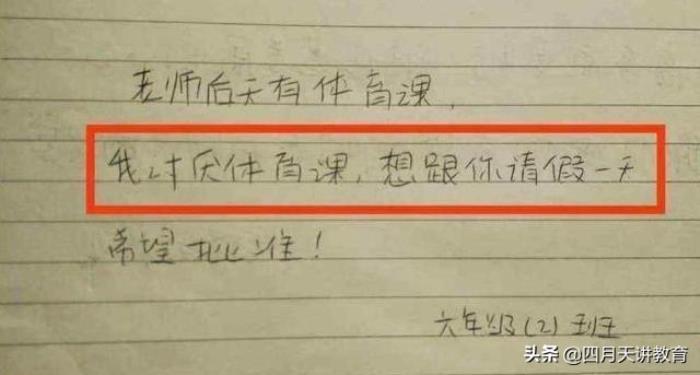 老师后天有体育课,
我讨厌体育课,想跟你请假一天
希望批准!
六年级(2)班
头条 @四月天讲教育